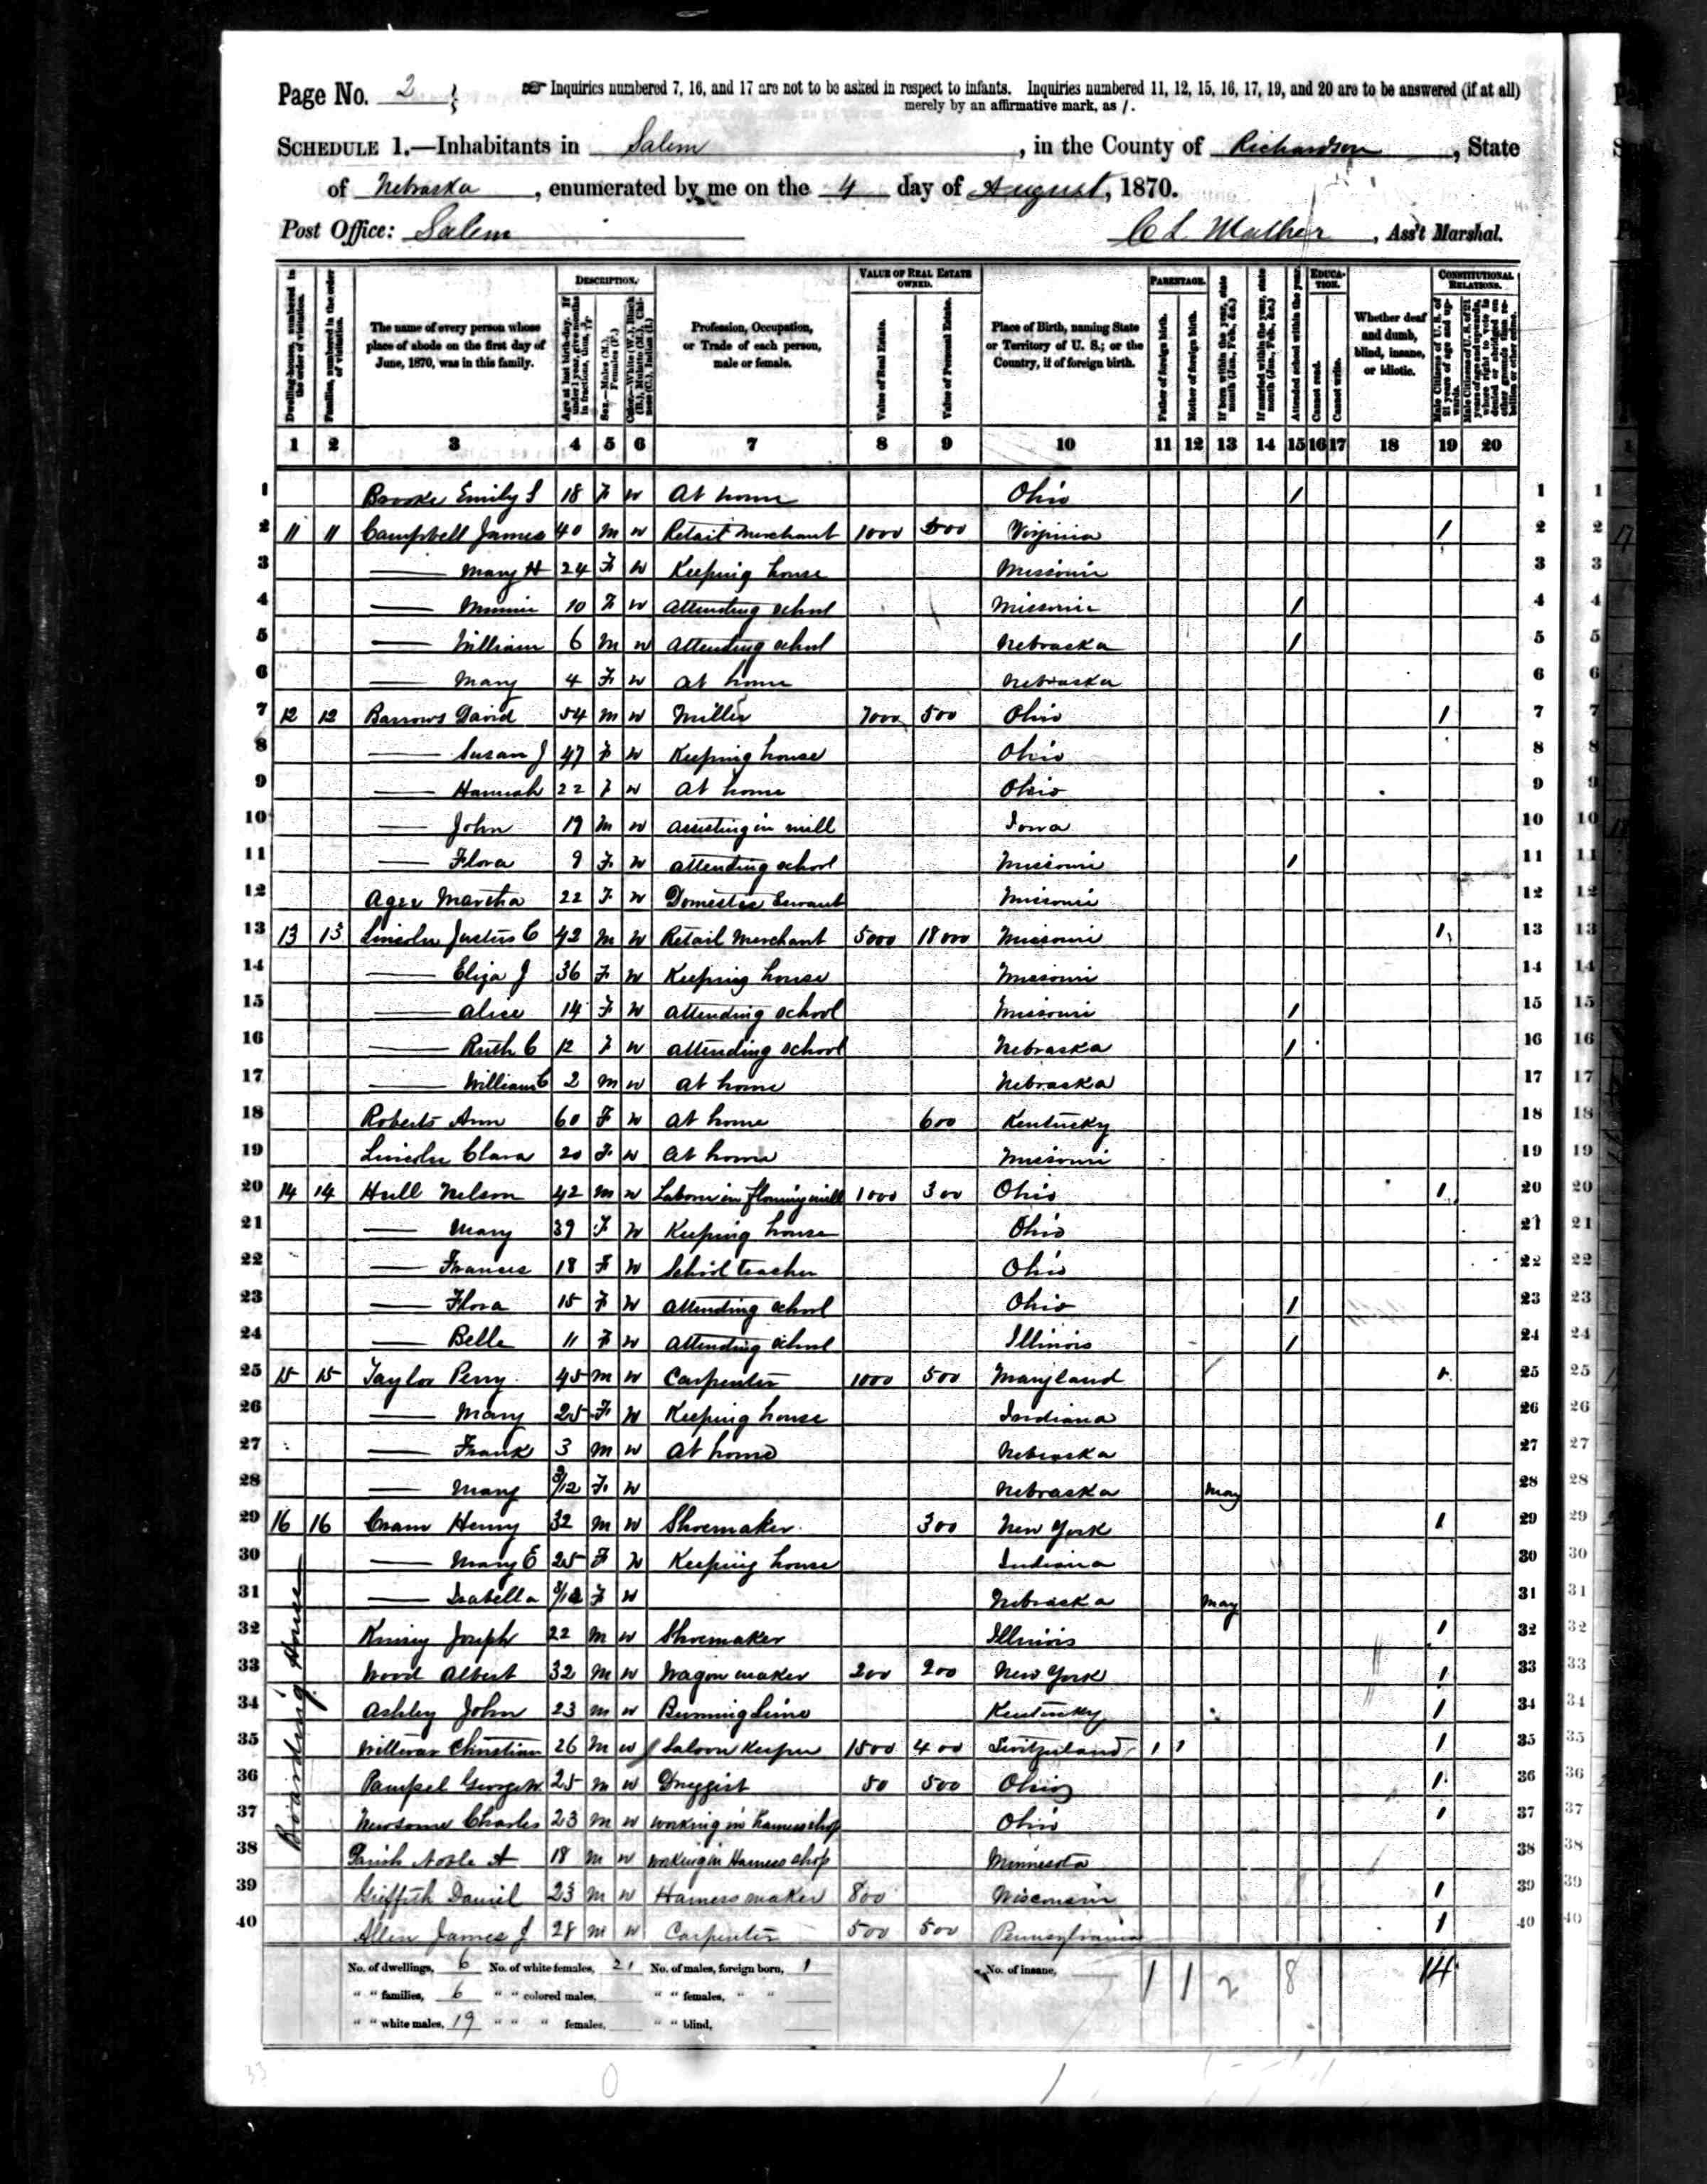 Page No. 2
Inquiries numbered 7, 16, and 17 are not to be asked in respect to infants. Inquiries numbered 11, 12, 15, 16, 17, 19, and 20 are to be answered (if at all)
merely by an affirmative mark, as /.
SCHEDULE 1.—Inhabitants in Salem, in the County of Richardson, State
of Nebraska, enumerated by me on the 4 day of August, 1870.
Post Office: Salem
C L Mather, Ass't Marshal.
DESCRIPTION. VALUE OF REAL ESTATE OWNED. PARENTAGE. EDUCATION. CONSTITUTIONAL RELATIONS.
Dwelling-houses, numbered in the order of visitation.
Families, numbered in the order of visitation.
The name of every person whose place of abode on the first day of June, 1870, was in this family.
Age at last birth-day. If under 1 year, give months in fractions, thus, 3/12
Sex.—Males (M.), Females (F.)
Color.—White (W.), Black (B.), Mulatto (M.), Chinese (C.), Indian (I.)
Profession, Occupation, or Trade of each person, male or female.
Value of Real Estate.
Value of Personal Estate.
Place of Birth, naming State or Territory of U. S.; or the Country, if of foreign birth.
Father of foreign birth.
Mother of foreign birth.
If born within the year, state month (Jan., Feb., &c.)
If married within the year, state month (Jan., Feb., &c.)
Attended school within the year.
Cannot read.
Cannot write.
Whether deaf and dumb, blind, insane, or idiotic.
Male Citizens of U. S. of 21 years of age and upwards.
Male Citizens of U. S. of 21 years of age and upwards, whose right to vote is denied or abridged on other grounds than rebellion or other crime.
1 2 3 4 5 6 7 8 9 10 11 12 13 14 15 16 17 18 19 20
1 Brooke Emily S 18 F W At home Ohio / 1
2 11 11 Campbell James 40 M W Retail Merchant 1000 500 Virginia / 2
3 —— Mary H 24 F W Keeping house Missouri 3
4 —— Minnie 10 F W Attending school Missouri / 4
5 —— William 6 M W Attending school Nebraska / 5
6 —— Mary 4 F W At home Nebraska 6
7 12 12 Barrows David 54 M W Miller 7000 500 Ohio / 7
8 —— Susan J 47 F W Keeping house Ohio 8
9 —— Hannah 22 F W At home Ohio 9
10 —— John 19 M W Assisting in mill Iowa 10
11 —— Flora 9 F W Attending school Missouri / 11
12 Ager Martha 22 F W Domestic Servant Missouri 12
13 13 13 Lincoln Justus C 42 M W Retail Merchant 5000 18000 Missouri / 13
14 —— Eliza J 36 F W Keeping house Missouri 14
15 —— Alice 14 F W Attending school Missouri / 15
16 —— Ruth C 12 F W Attending school Nebraska / 16
17 —— William C 2 M W At home Nebraska 17
18 Roberts Ann 60 F W At home 600 Kentucky 18
19 Lincoln Clara 20 F W At home Missouri 19
20 14 14 Hull Nelson 42 M W Labour in flouring mill 1000 300 Ohio / 20
21 —— Mary 39 F W Keeping house Ohio 21
22 —— Frances 18 F W School teacher Ohio 22
23 —— Flora 15 F W Attending school Ohio / 23
24 —— Belle 11 F W Attending school Illinois / 24
25 15 15 Taylor Perry 45 M W Carpenter 1000 500 Maryland / 25
26 —— Mary 25 F W Keeping house Indiana 26
27 —— Frank 3 M W At home Nebraska 27
28 —— Mary 3/12 F W Nebraska May 28
29 16 16 Cram Henry 32 M W Shoemaker 300 New York / 29
30 —— Mary E 25 F W Keeping house Indiana 30
31 —— Isabella 3/12 F W Nebraska May 31
Boarding House
32 Kinsey Joseph 22 M W Shoemaker Illinois / 32
33 Wood Albert 32 M W Wagon maker 200 200 New York / 33
34 Ashley John 23 M W Burning Lime Kentucky / 34
35 Christian 26 M W Saloon Keeper 1500 400 Switzerland / / / 35
36 Pampel George W 25 M W Druggist 50 500 Ohio / 36
37 Newsome Charles 23 M W Working in harness shop Ohio / 37
38 Parish Noble A 18 M W Working in Harness shop Minnesota 38
39 Griffith Daniel 23 M W Harness maker 800 Wisconsin / 39
40 Allen James J 28 M W Carpenter 500 500 Pennsylvania / 40
No. of dwellings, 6 No. of white females, 21 No. of males, foreign born, 1 No. of insane, 1 1 2 8 14
" " families, 6 " " colored males, " " females, " "
" " white males, 19 " " " females, " " blind,